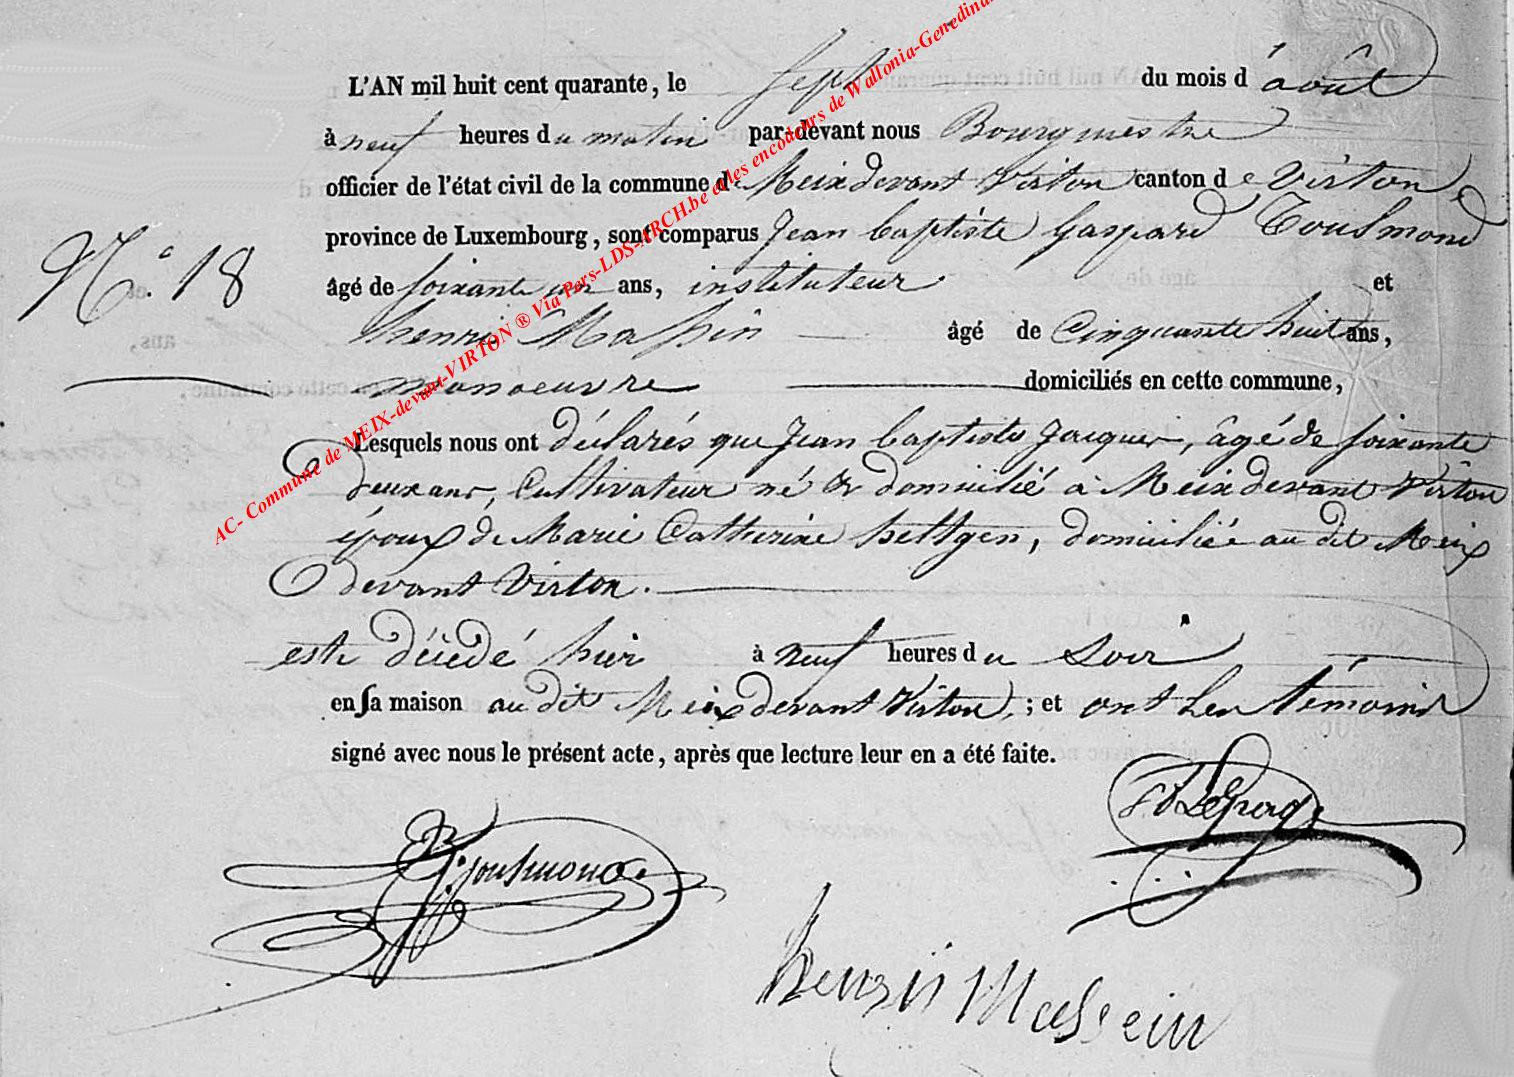 L'AN mil huit cent quarante, le sept du mois d'août
à neuf heures du matin par-devant nous Bourgmestre
officier de l'état civil de la commune de Meix devant Virton canton de Virton,
province de Luxembourg, sont comparus Jean Baptiste Gaspard Tousmond
N.° 18
âgé de soixante un ans, instituteur et
henri Massin âgé de Cinquante huit ans,
manoeuvre domiciliés en cette commune,
Lesquels nous ont déclarés que Jean baptiste Jacques, âgé de soixante
deux ans, Cultivateur né & domicilié à Meix devant Virton
époux de Marie Catherine hettgen, domiciliée au dit Meix
devant Virton.
est décédé hier à neuf heures du soir
en sa maison au dit Meix devant Virton, ; et ont Les témoins
signé avec nous le présent acte, après que lecture leur en a été faite.
Tousmond
henri Massein
AC- Commune de MEIX-devant-VIRTON ® Via Pers-LDS-ARCH.be et les encodeurs de Wallonia-Genedinan